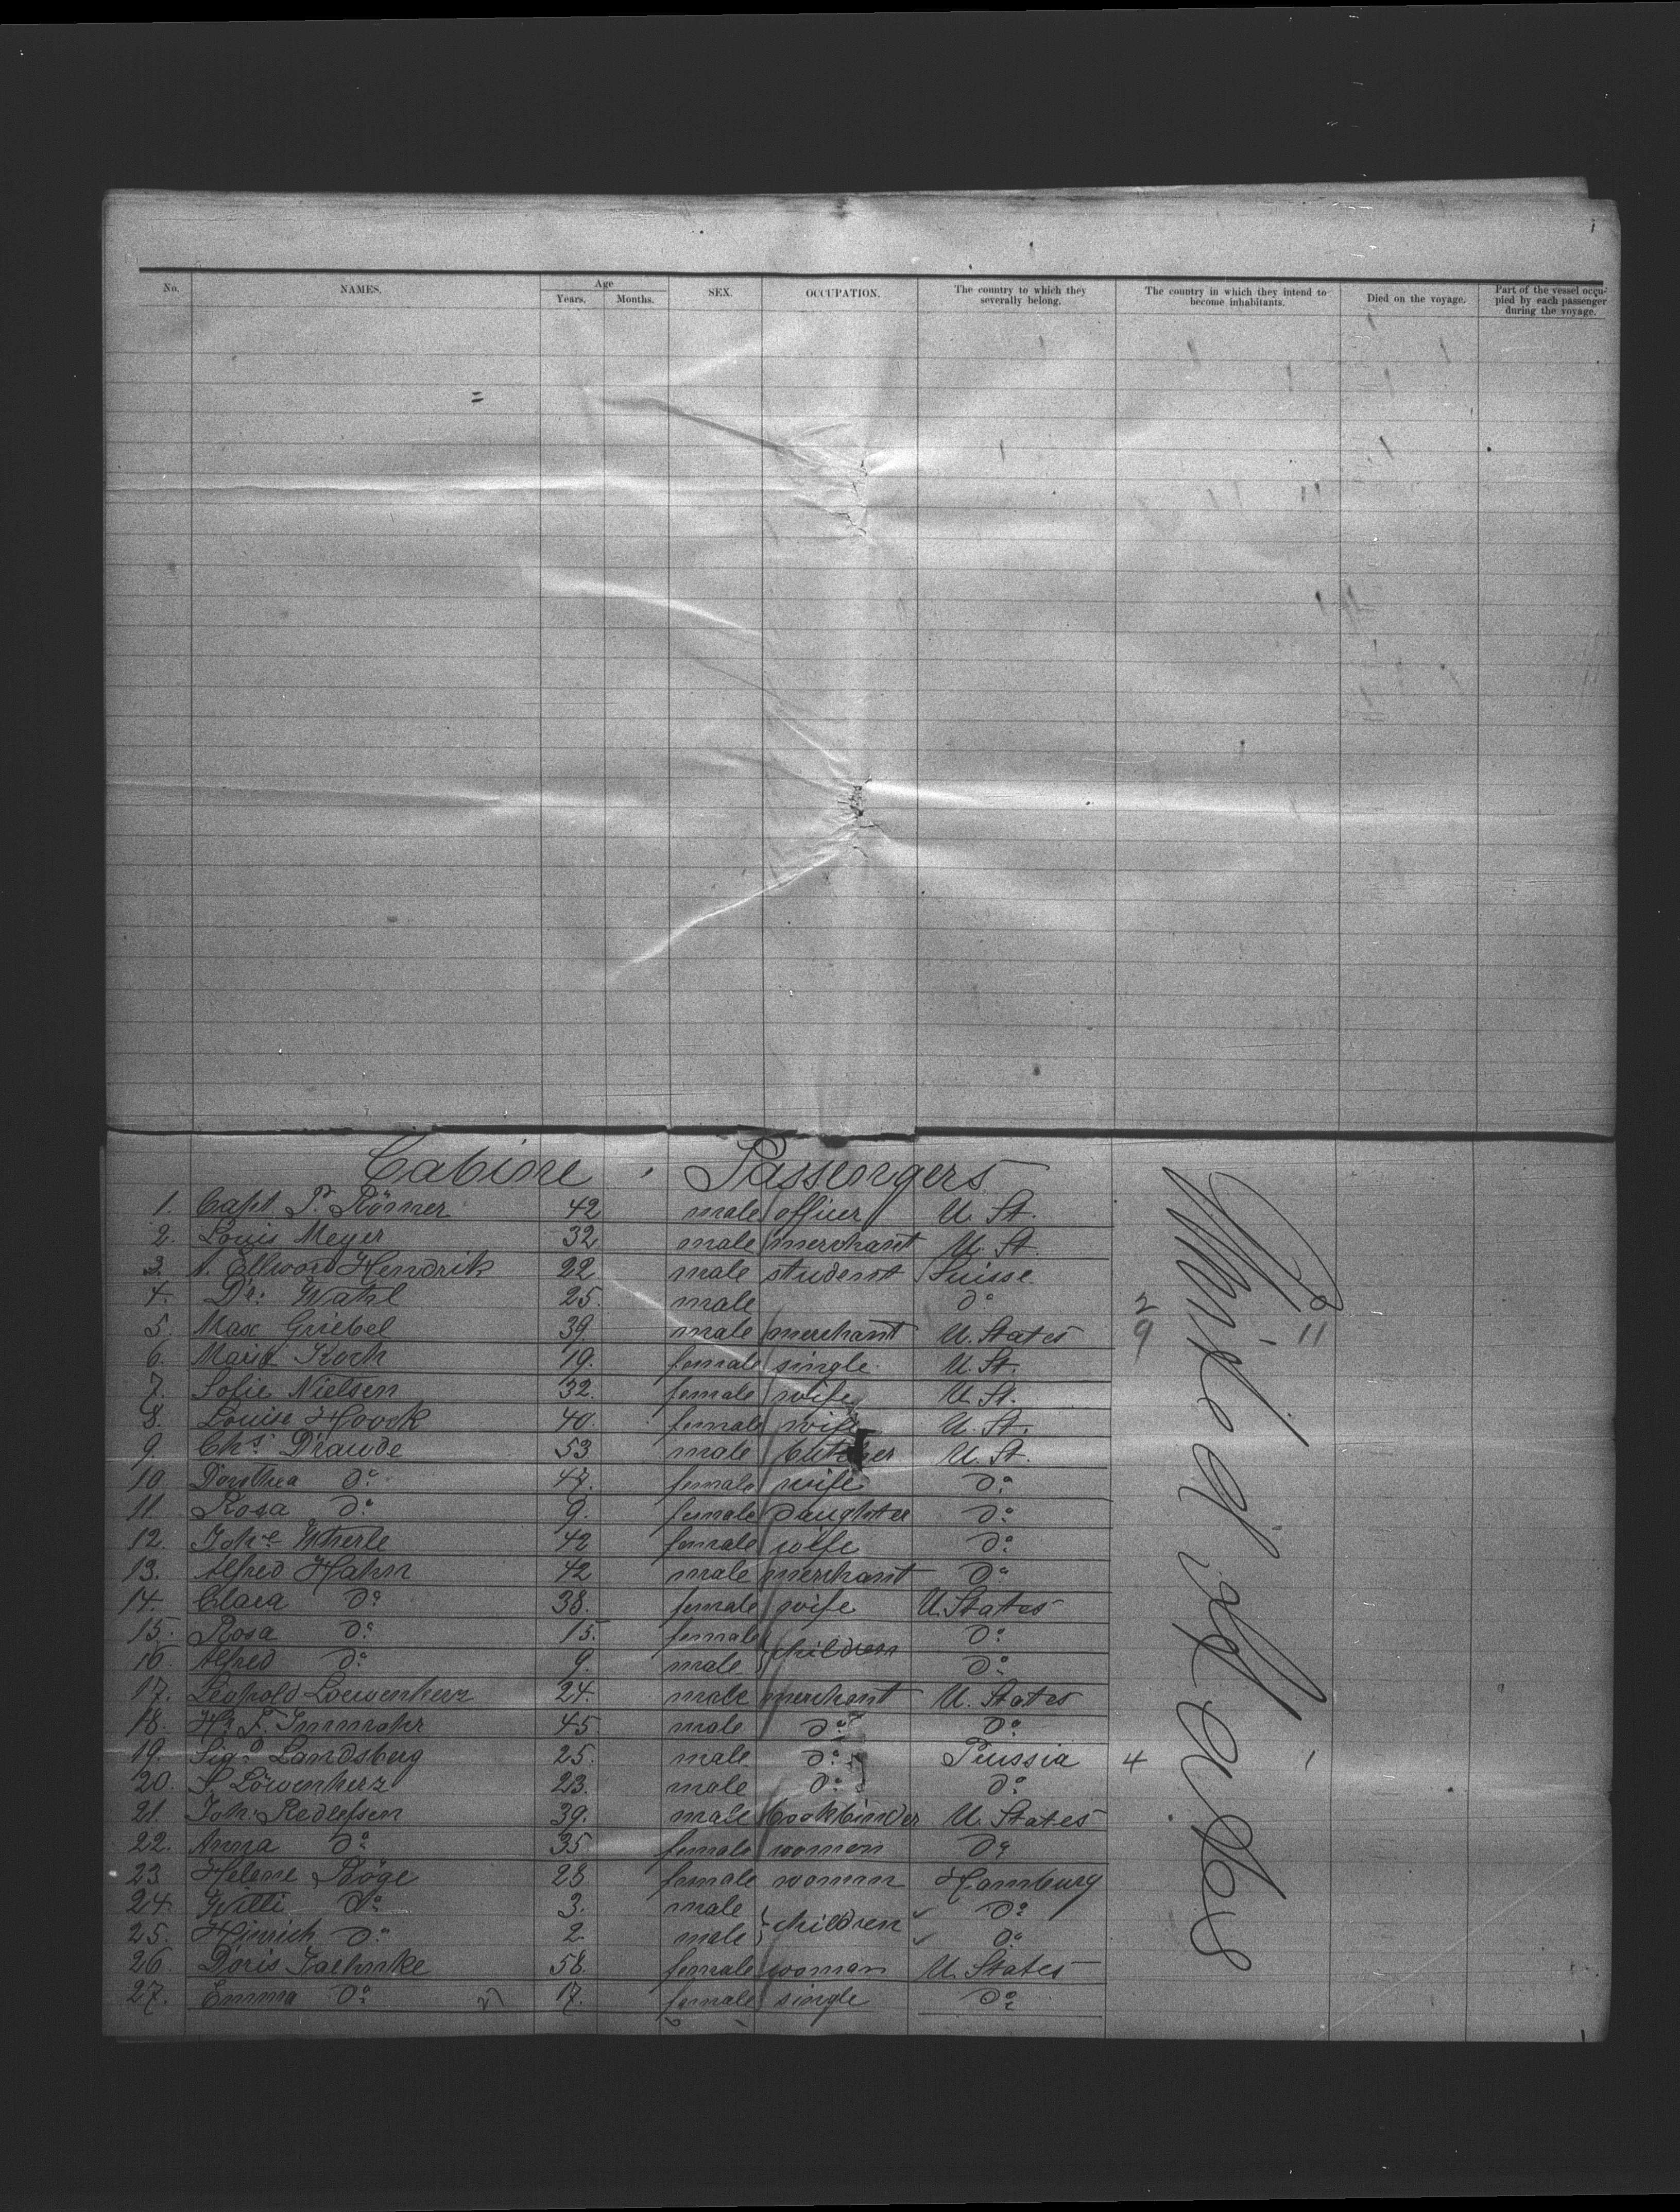 No. NAMES. Age Years. Months. SEX. OCCUPATION. The country to which they severally belong. The country in which they intend to become inhabitants. Died on the voyage. Part of the vessel occupied by each passenger during the voyage.
Cabine Passengers
1. Capt. P. Römer 42 male officer U. St.
2. Louis Meyer 32 male merchant U. St.
3. A. Ellword Hendrik 22 male student Suisse
4. Dr: Wahl 25. male do 2
5. Max Griebel 39. male merchant U. States 9 11
6. Koch 19. female single. U. St.
7. Sofie Nielsen 32. female wife U. St.
8. Louise Hoock 40. female wife U. St.
9. Chs Draude 53 male butcher U. St.
10. Dorothea do 47. female wife do
11. Rosa do 9. female daughter do
12. 42 female wife do
13. Alfred Hahn 42 male merchant do
14. Clara do 38. female wife U. States
15. Rosa do 15. female children do
16. Alfred do 9. male do
17. Leopold Loewenherz 24. male merchant U. States
18. 45 male do do
19. Landsberg 25. male do Prussia 4 1
20. S. Löwenherz 23. male do do
21. Joh. Redlefsen 39. male bookbinder U. States
22. Anna do 35 female women do
23. Helene Böge 28 female woman Hamburg
24. Willi do 3. male children do
25. Hinrich do 2. male do
26. Doris Jaehnke 58. female woman U. States
27. Emma do 17. female single do